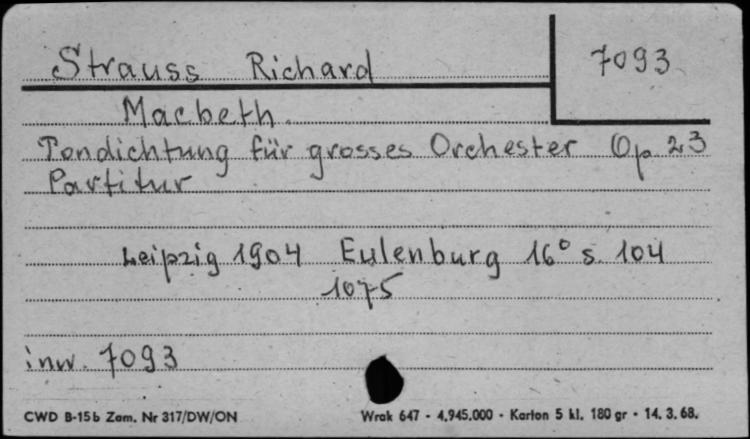 Strauss Richard
7093
Macbeth.
Tondichtung für grosses Orchester Op. 23
Partitur
Leipzig 1904 Eulenburg 16° s. 104
1075
inw. 7093
CWD B-15b Zam. Nr 317/DW/ON
Wrak 647 - 4.945.000 - Karton 5 kl. 180 gr - 14. 3. 68.